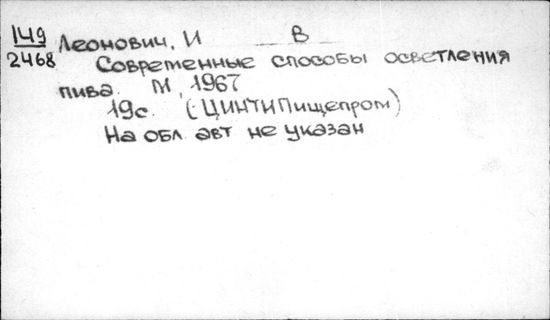 149 Леонович, И В
2468 Современные способы осветления
пива. М, 1967
19с. (ЦИНТИПищепром)
На обл. авт не указан